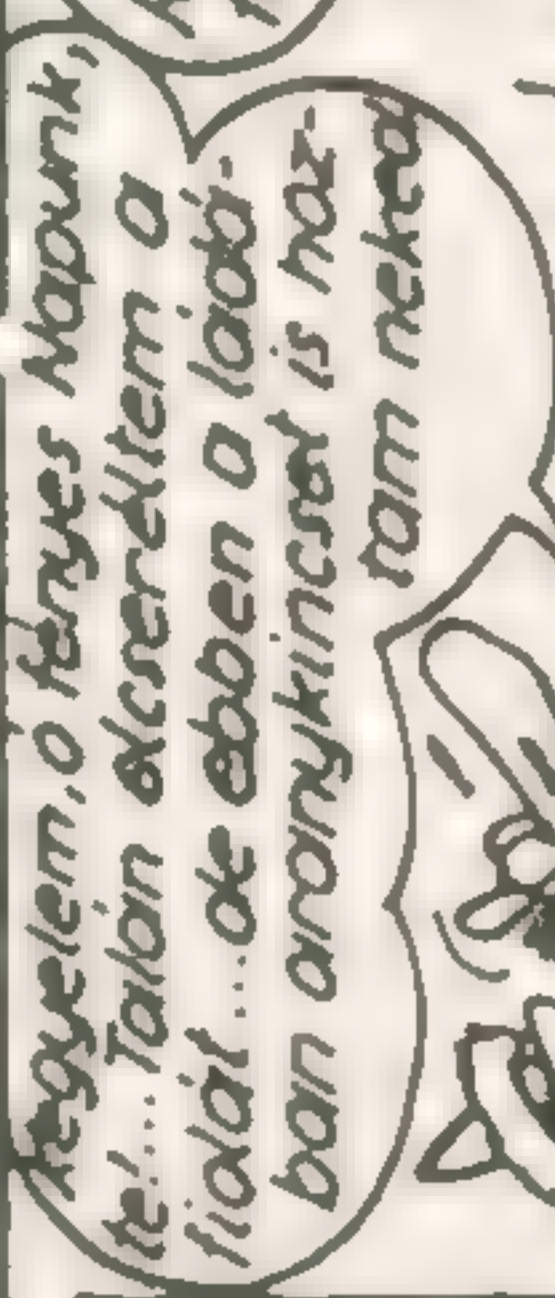 Kegyelem, ó fényes Napunk,
te!... Talán elcseréltem a
fiolát... de ebben a ládá-
ban aranykincset is hoz-
tam neked